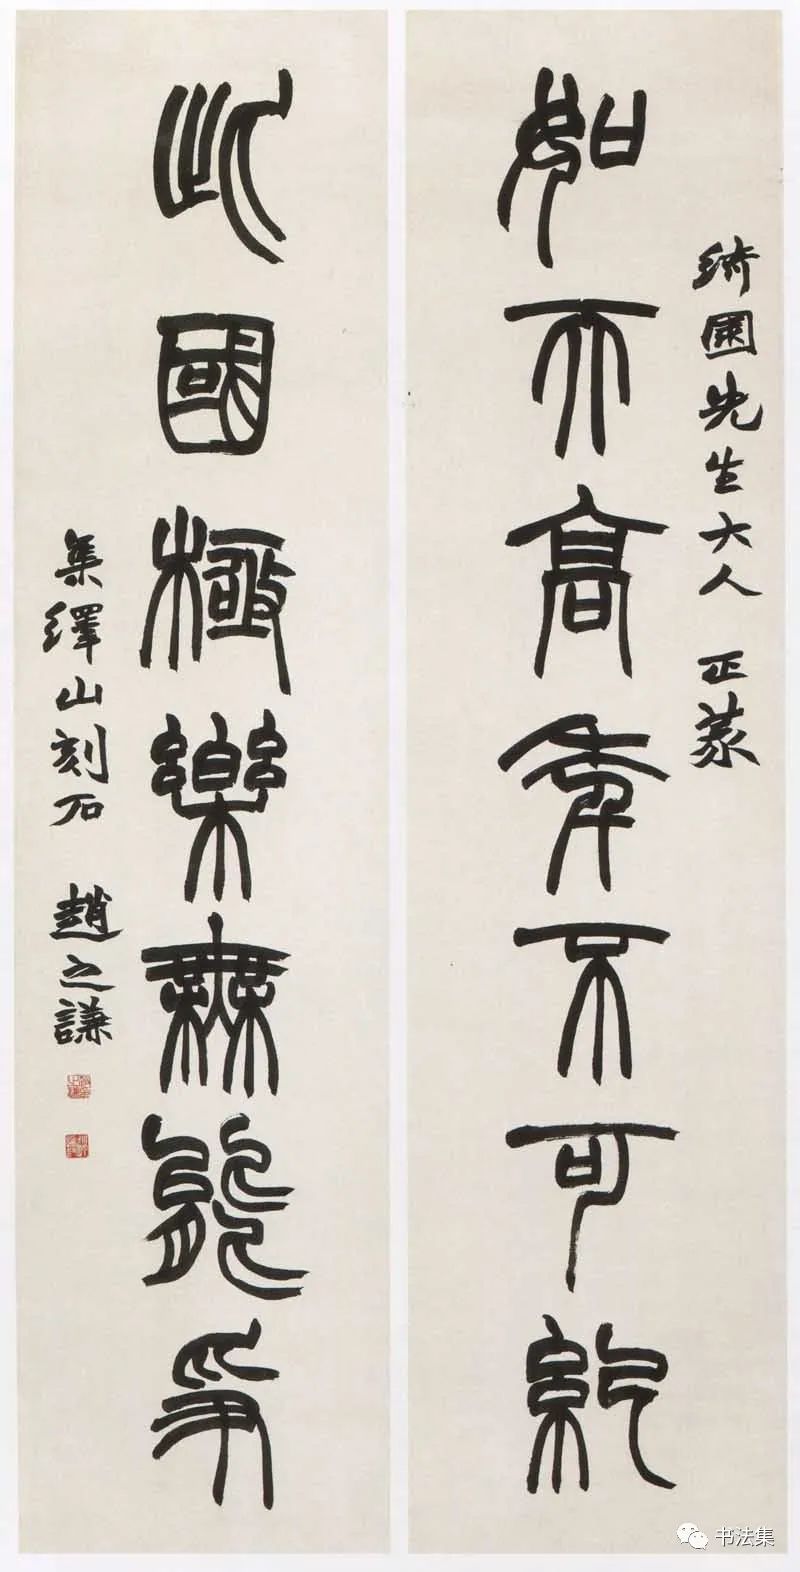 綺園先生大人 正篆
如天高年不可紀
此國極樂無能爭
集繹山刻石 趙之謙
书法集